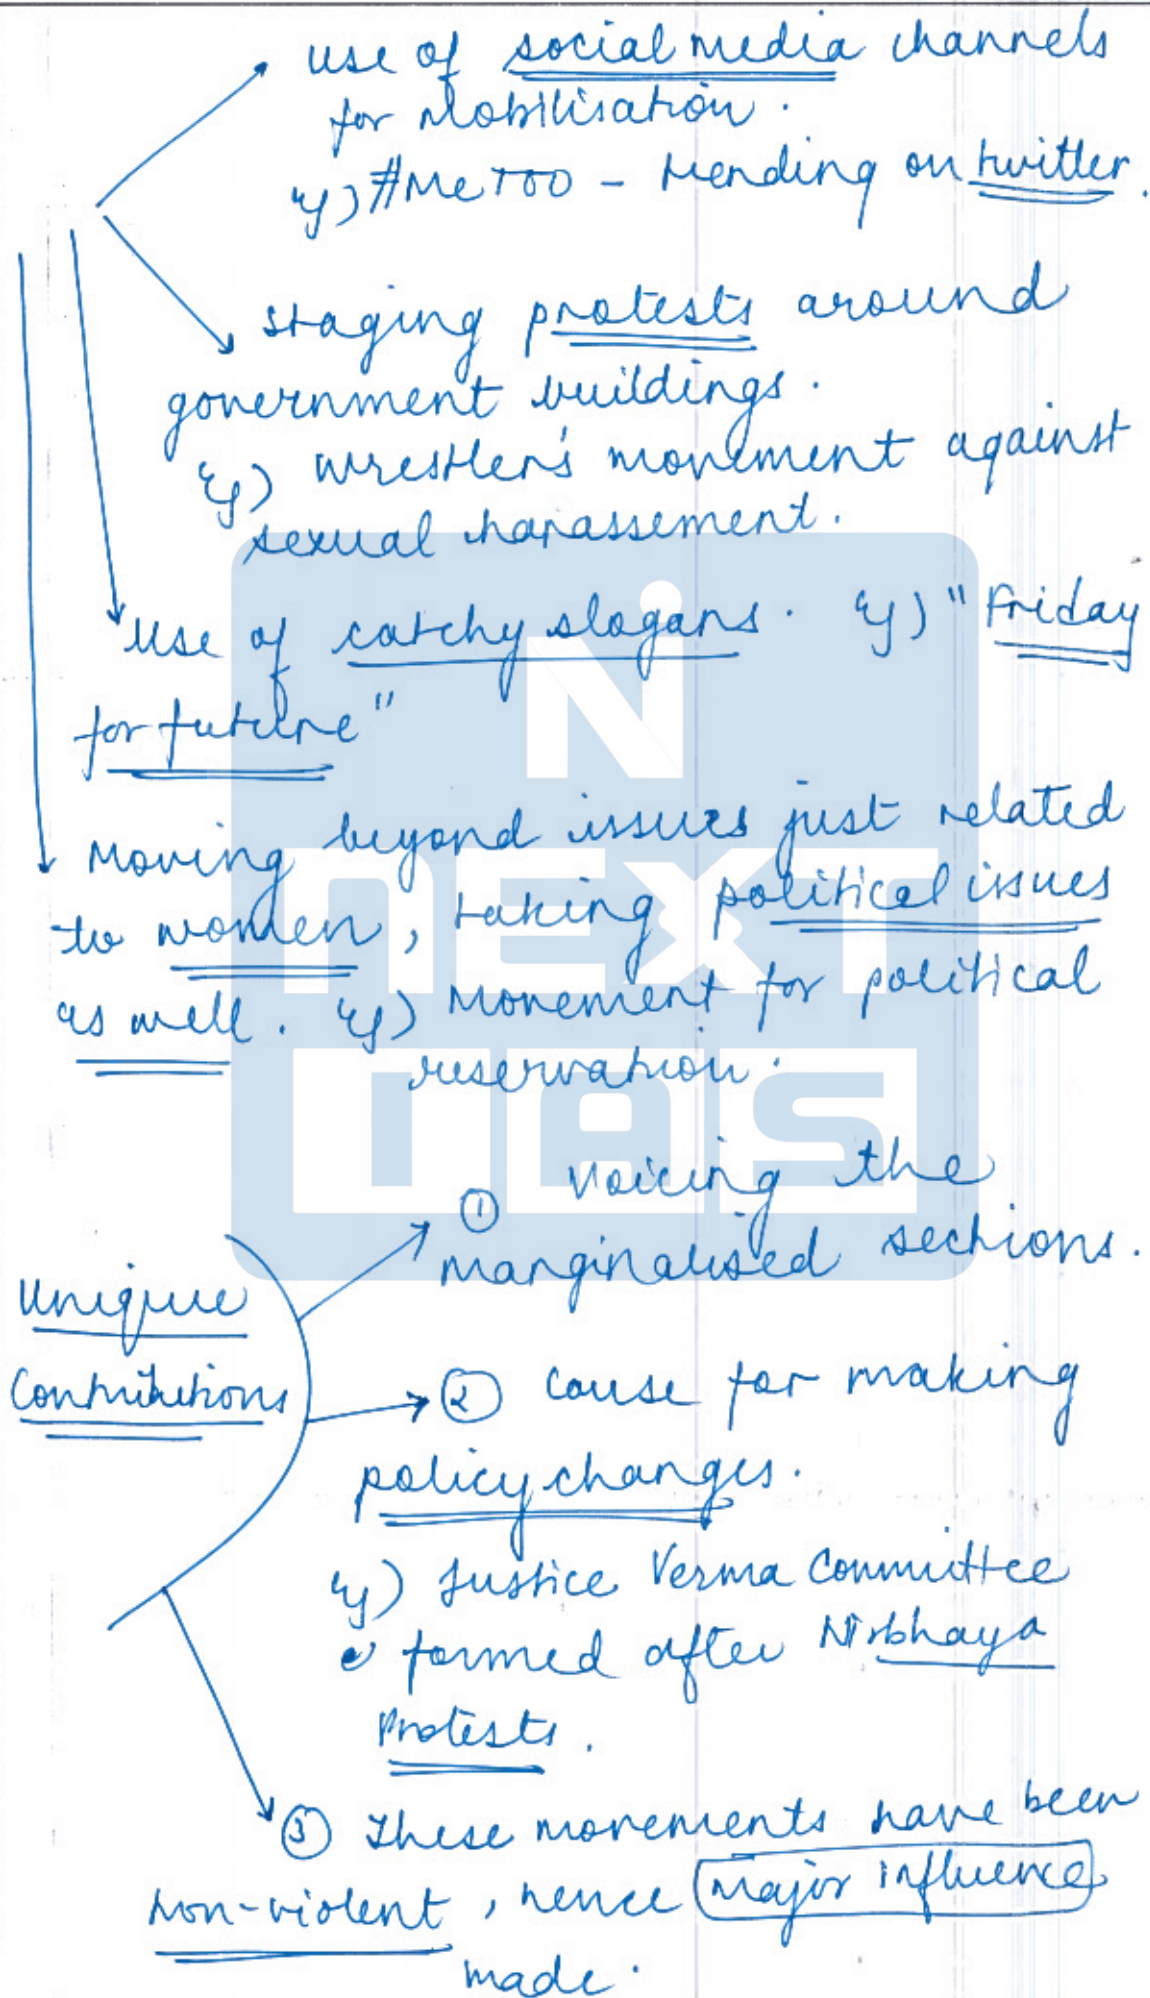 use of social media channels
for Mobilisation.
eg) #MeTOO - trending on twitter.
staging protests around
government buildings.
eg) wrestler's movement against
sexual harassement.
Use of catchy slogans. eg) "Friday
for future"
Moving beyond issues just related
to women, taking political issues
as well. eg) Movement for political
reservation.
① Voicing the
marginalised sections.
Unique
Contributions
② Cause for making
policy changes.
eg) Justice Verma Committee
formed after Nirbhaya
Protests.
③ These movements have been
non-violent, hence Major influence
made.
NEXT
IAS